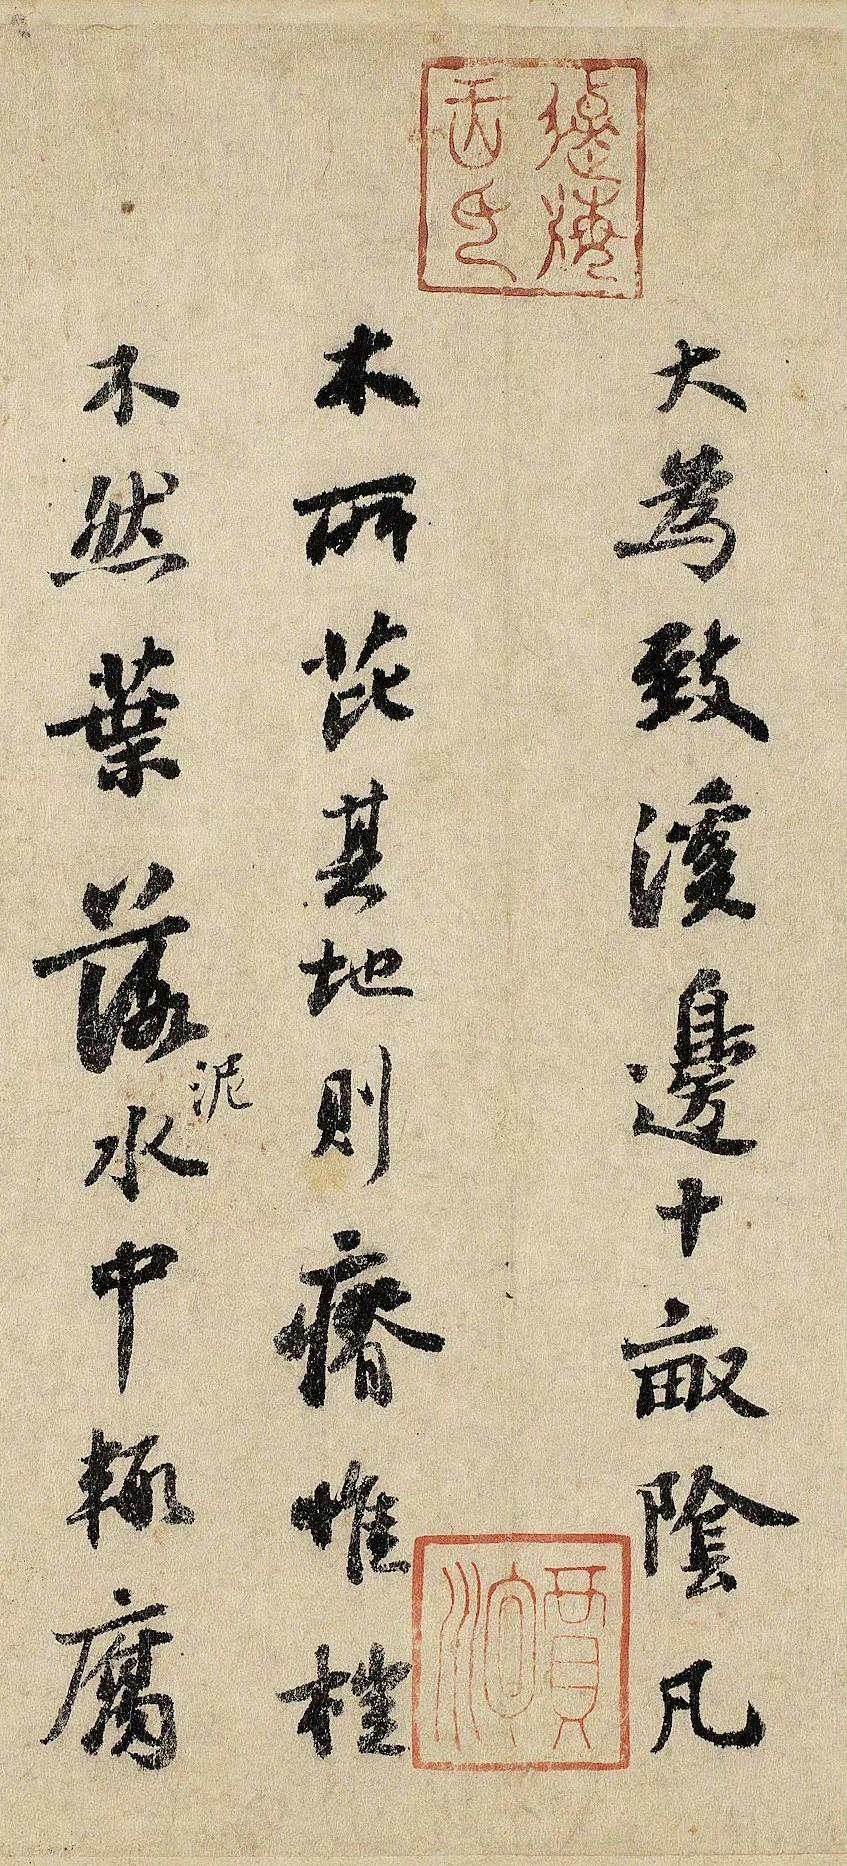 大為致溪邊十畝陰凡
木所芘其地則瘠惟榿
不然葉落泥水中輒腐